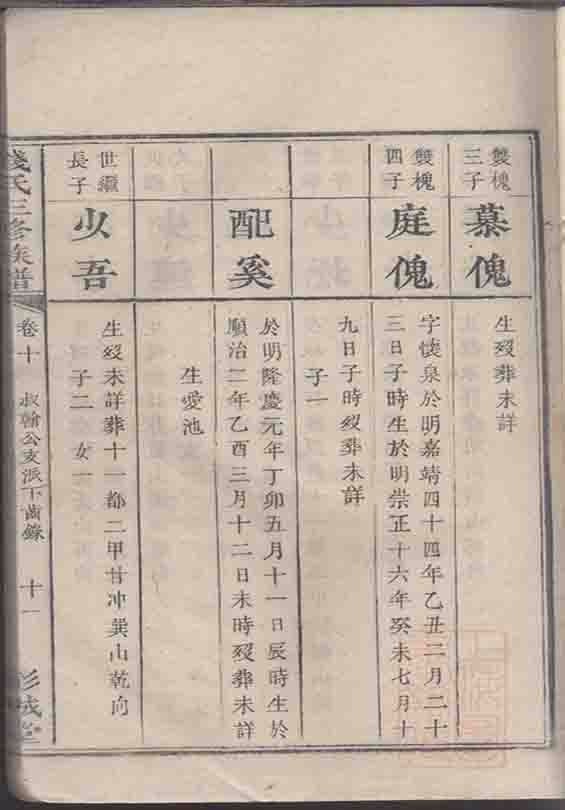 雙槐
三子
慕傀
生歿葬未詳
雙槐
四子
庭傀
字懷泉於明嘉靖四十四年乙丑二月二十
三日子時生於明崇正十六年癸未七月十
九日子時歿葬未詳
子一
配奚
於明隆慶元年丁卯五月十一日辰時生於
順治二年乙酉三月十二日未時歿葬未詳
生愛池
世繼
長子
少吾
生歿未詳葬十一都二甲甘冲巽山乾向
子二 女一
錢氏三修族譜
卷十 叔翰公支派下齒錄 十一
彭城堂